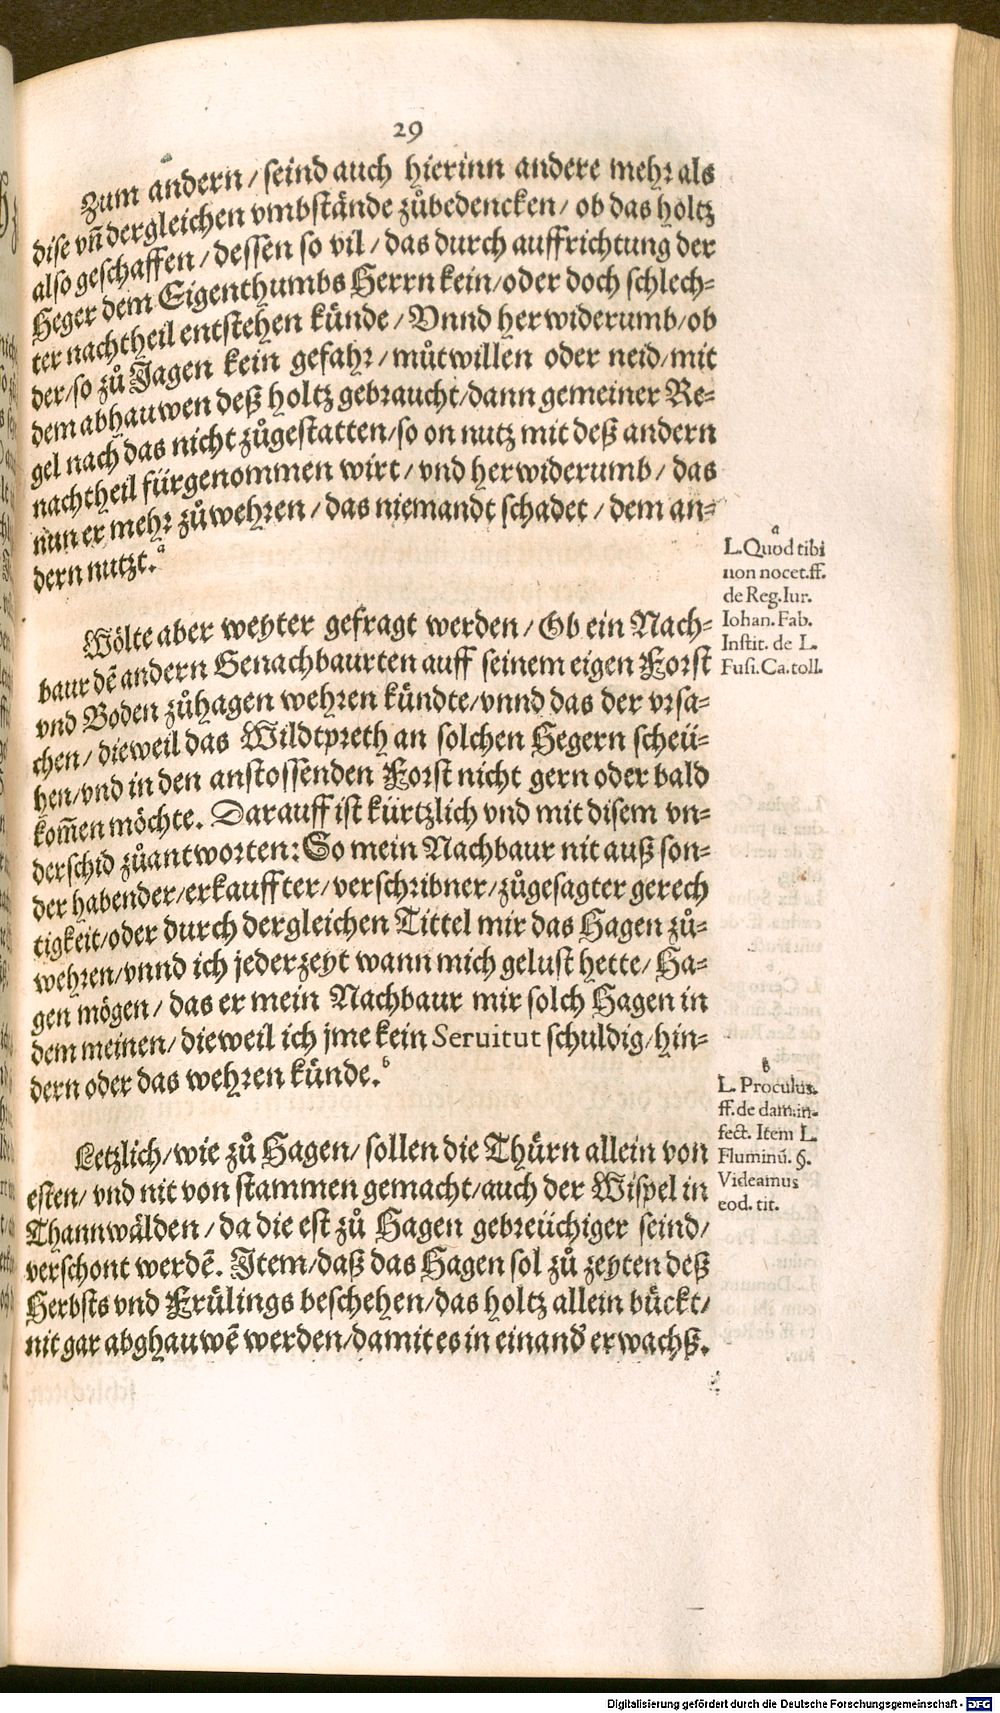 29
Zum andern / seind auch hierinn andere mehr als
dise vñ dergleichen vmbstände zůbedencken / ob das holtz
also geschaffen / dessen so vil / das durch auffrichtung der
Heger dem Eigenthumbs Herrn kein / oder doch schlech⸗
ter nachtheil entstehen künde / Vnnd herwiderumb / ob
der / so zů Jagen kein gefahr / můtwillen oder neid / mit
dem abhauwen deß holtz gebraucht / dann gemeiner Re⸗
gel nach das nicht zůgestatten / so on nutz mit deß andern
nachtheil fürgenommen wirt / vnd herwiderumb / das
nun er mehr zůwehren / das niemandt schadet / dem an⸗
dern nutzt.ª
a
L. Quod tibi
non nocet. ff.
de Reg. Iur.
Iohan. Fab.
Instit. de L.
Fusi. Ca. toll.
Wölte aber weyter gefragt werden / Ob ein Nach⸗
baur dē andern Benachbaurten auff seinem eigen Forst
vnd Boden zůhagen wehren kündte / vnnd das der vrsa⸗
chen / dieweil das Wildtpreth an solchen Hegern scheü⸗
hen / vnd in den anstossenden Forst nicht gern oder bald
kom̃en möchte. Darauff ist kürtzlich vnd mit disem vn⸗
derschid zůantworten: So mein Nachbaur nit auß son⸗
der habender / erkauffter / verschribner / zůgesagter gerech
tigkeit / oder durch dergleichen Tittel mir das Hagen zů⸗
wehren / vnnd ich jederzeyt wann mich gelust hette / Ha⸗
gen mögen / das er mein Nachbaur mir solch Hagen in
dem meinen / dieweil ich jme kein Seruitut schuldig / hin⸗
dern oder das wehren künde.b
b
L. Proculus.
ff. de dam. in-
fect. Item L.
Fluminū. §.
Videamus
eod. tit.
Letzlich / wie zů Hagen / sollen die Thürn allein von
esten / vnd nit von stammen gemacht / auch der Wispel in
Thannwälden / da die est zů Hagen gebreüchiger seind /
verschont werdē. Item / daß das Hagen sol zů zeyten deß
Herbsts vnd Frülings beschehen / das holtz allein bückt /
nit gar abghauwē werden / damit es in einand' erwachß.
Digitalisierung gefördert durch die Deutsche Forschungsgemeinschaft - DFG